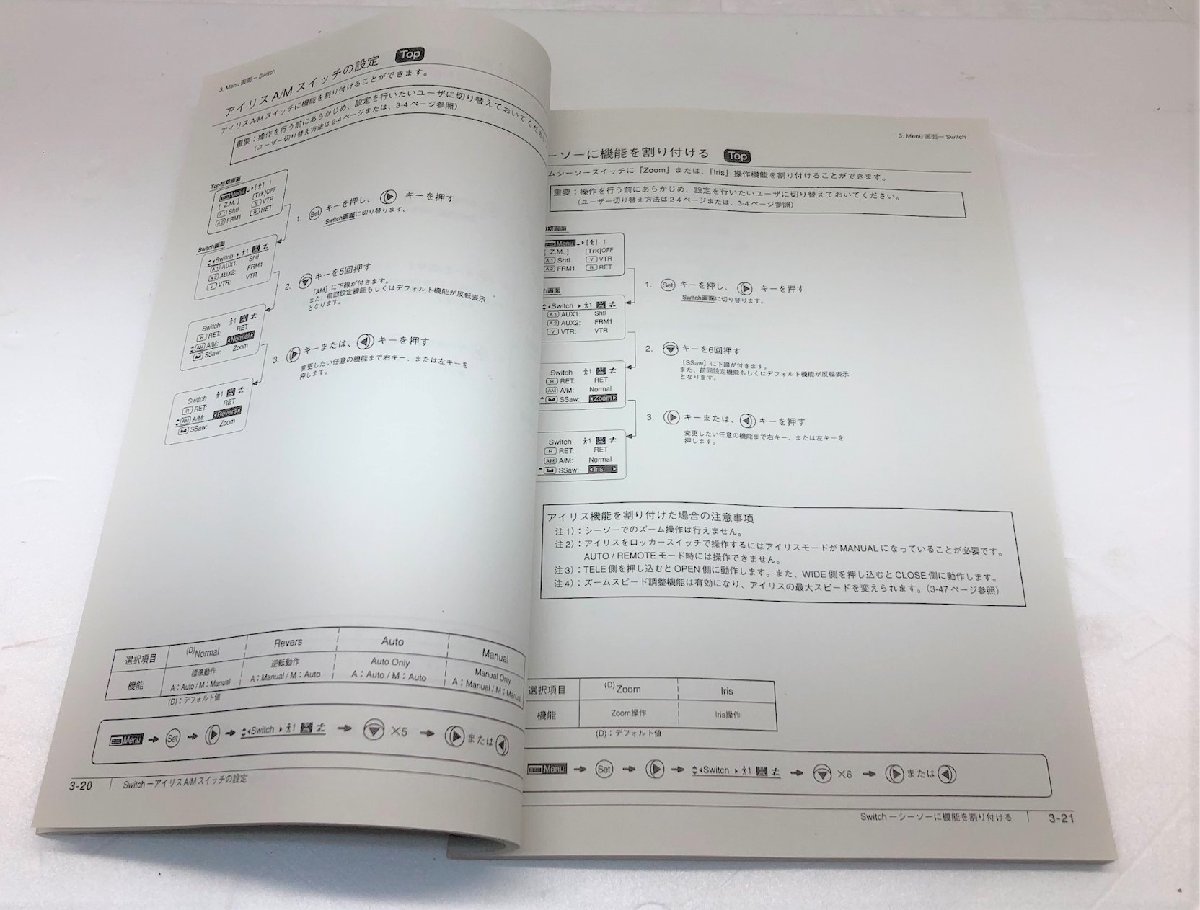 3. Menu 画面ー Switch
アイリス A/M スイッチの設定 Top
アイリス A/M スイッチに機能を割り付けることができます。
重要：操作を行う前にあらかじめ、設定を行いたいユーザに切り替えておいてく
(ユーザー切り替え方法は2-4ページまたは、3-4 ページ参照)
Top
Menu
[Z.M.] [Trk]OFF
Shtl VTR
FRM1 RET
1. Set キーを押し、 キーを押す
Switch画面に切り替ります。
Switch画面
Switch
AUX1: Shtl
AUX2: FRM1
VTR: VTR
2. キーを5回押す
「A/M」に下線が付きます。
また、前回設定機能もしくはデフォルト機能が反転表示
となります。
Switch
RET: RET
A/M: Normal
SSaw: Zoom
3. キーまたは、 キーを押す
変更したい任意の機能まで右キー、または左キーを
押します。
Switch
RET: RET
A/M: Revers
SSaw: Zoom
選択項目 (D)Normal Revers Auto Manual
機能 標準動作 逆転動作 Auto Only Manual Only
A：Auto / M：Manual A：Manual / M：Auto A：Auto / M：Auto A：Manual / M：Manual
(D)：デフォルト値
Menu → Set → → Switch → ×5 → または
3-20 Switch ーアイリス A/M スイッチの設定
3. Menu 画面ー Switch
ーソーに機能を割り付ける Top
ムシーソースイッチに「Zoom」または、「Iris」操作機能を割り付けることができます。
重要：操作を行う前にあらかじめ、設定を行いたいユーザに切り替えておいてください。
(ユーザー切り替え方法は2-4ページまたは、3-4ページ参照)
期画面
Menu
[Z.M.] [Trk]OFF
A1 Shtl V VTR
A2 FRM1 R RET
1. Set キーを押し、 キーを押す
Switch画面に切り替ります。
画面
Switch
A1 AUX1: Shtl
A2 AUX2: FRM1
V VTR: VTR
2. キーを6回押す
「SSaw」に下線が付きます。
また、前回設定機能もしくはデフォルト機能が反転表示
となります。
Switch
R RET: RET
AM A/M: Normal
SSaw: Zoom
3. キーまたは、 キーを押す
変更したい任意の機能まで右キー、または左キーを
押します。
Switch
R RET: RET
AM A/M: Normal
SSaw: Iris
アイリス機能を割り付けた場合の注意事項
注1)：シーソーでのズーム操作は行えません。
注2)：アイリスをロッカースイッチで操作するにはアイリスモードが MANUAL になっていることが必要です。
AUTO / REMOTE モード時には操作できません。
注3)：TELE 側を押し込むと OPEN 側に動作します。また、WIDE 側を押し込むと CLOSE 側に動作します。
注4)：ズームスピード調整機能は有効になり、アイリスの最大スピードを変えられます。(3-47 ページ参照)
選択項目 (D)Zoom Iris
機能 Zoom操作 Iris操作
(D)：デフォルト値
Menu → Set → → Switch → ×6 → または
Switch ーシーソーに機能を割り付ける 3-21